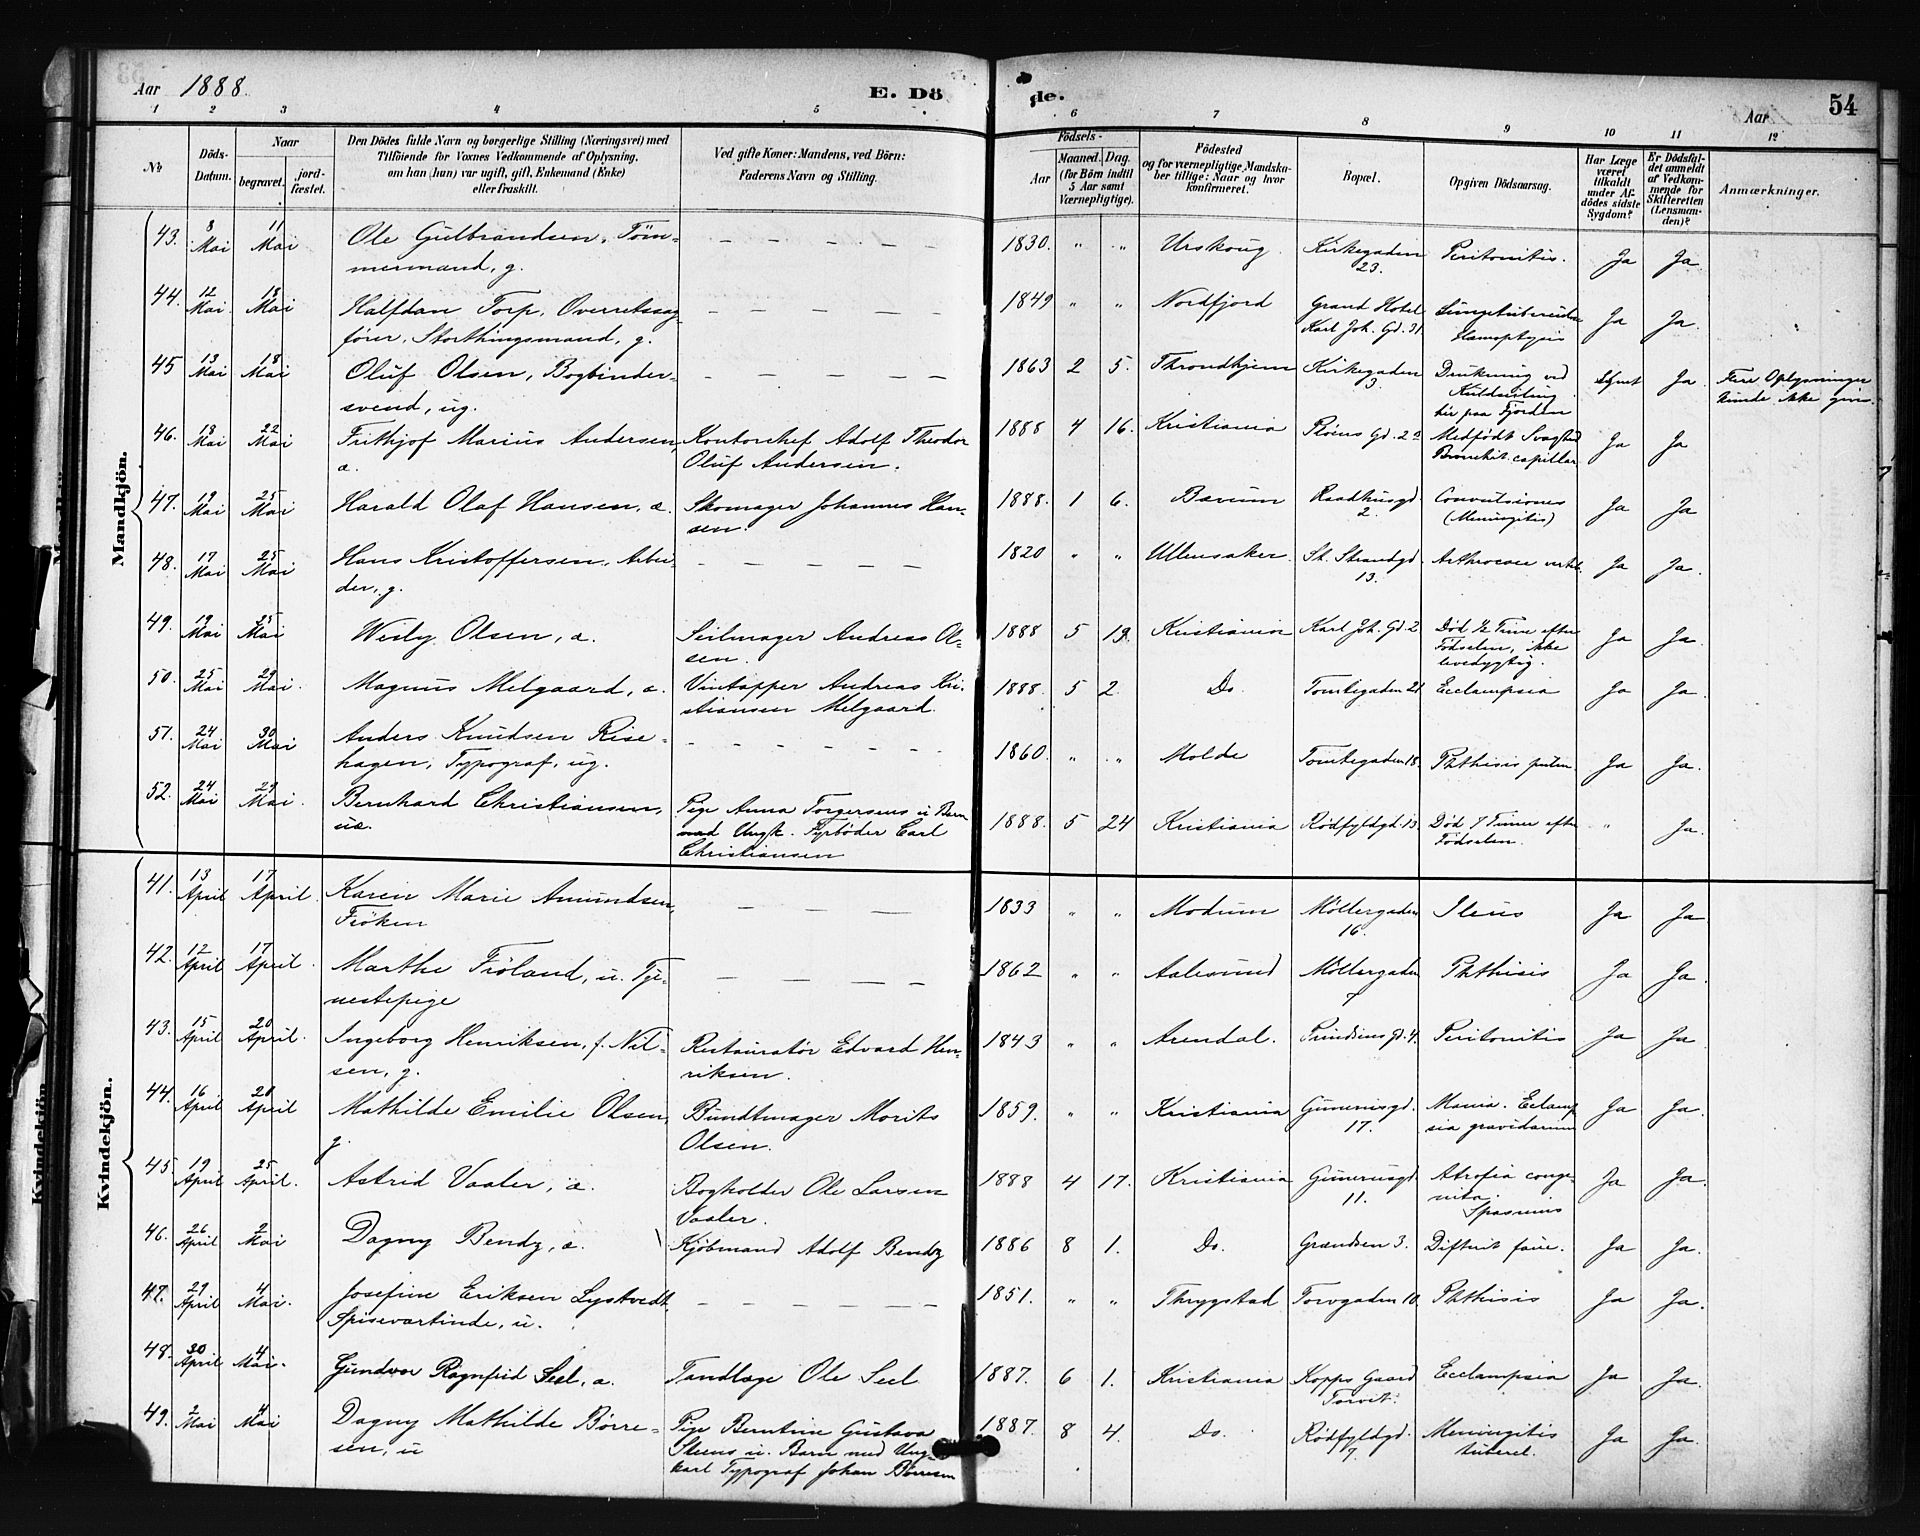 Aar 1888.
E. Döde.
Aar
54
1 2 3 4 5 6 7 8 9 10 11 12
№
Döds-Datum.
Naar
begravet.
jord-fæstet.
Den Dödes fulde Navn og borgerlige Stilling (Næringsvei) med
Tilföiende for Voxnes Vedkommende af Oplysning,
om han (hun) var ugift, gift, Enkemand (Enke)
eller fraskilt.
Ved gifte Koner: Mandens, ved Börn:
Faderens Navn og Stilling.
Födsels-
Aar
Maaned. Dag.
(for Börn indtil
5 Aar samt
Værnepligtige).
Födested
og for værnepligtige Mandska-
ber tillige: Naar og hvor
konfirmeret.
Bopæl.
Opgiven Dödsaarsag.
Har Læge
været
tilkaldt
under Af-
dödes sidste
Sygdom?
Er Dödsfal-
det anmeldt
af Vedkom-
mende for
Skifteretten
(Lensman-
den)?
Anmærkninger.
Mandkjön.
43. 8 Mai 11 Mai Ole Gulbrandsen, Töm-
mermand, g. — — — — — 1830. " " Urskoug. Kirkegaden 23. Peritonitis. Ja Ja.
44. 12 Mai. 18 Mai Halfdan Torp, Overretssag-
förer, Storthingsmand, g. — — — — — 1849 " " Nordfjord Grand Hotel
Karl Joh. Gd. 31 Hæmoptysis Ja Ja.
45 13 Mai 18 Mai Oluf Olsen, Bogbinder-
svend, ug. — — — — — 1863 2 5. Throndhjem Kirkegaden 3. Drukning ved
Kuldseiling
her paa Fjorden Ja. Flere Oplysninger
kunde ikke gives
46. 18 Mai 22 Mai Frithjof Marius Andersen,
a. Kontorchef Adolf Theodor
Oluf Andersen. 1888 4 16. Kristiania Pløens Gd. 2a Medfödt Svaghed
Bronchit. capillar. Ja Ja
47. 19 Mai 25 Mai Harald Olaf Hansen, æ. Skomager Johannes Han-
sen. 1888. 1 6. Bærum Raadhusgd. 2. Convulsiones
(Meningitis) Ja Ja
48. 17 Mai 25 Mai Hans Kristoffersen, Arbei-
der, g. — — — — — 1820 " " Ullensaker. St. Strandgd. 13. Arthrocace vertebr. Ja Ja.
49. 19 Mai 25 Mai Wesly Olsen, æ. Seilmager Andreas Ol-
sen. 1888 5 19. Kristiania Karl Joh. Gd. 2 Död ½ Time efter
Födselen, ikke
levedygtig. Ja Ja.
50. 25 Mai 29 Mai. Magnus Melgaard, æ. Vintapper Andreas Kri-
stiansen Melgaard. 1888. 5 2. Do. Tomtegaden 21 Ecclampsia Ja Ja.
51. 24 Mai 30 Mai Anders Knudsen Rise-
hagen, Typograf, ug. — — — — — — 1860. " " Molde Tomtegaden 18. Phthisis pulm. Ja Ja.
52. 24 Mai 29 Mai. Bernhard Christiansen,
uæ. Pige Anna Torgersens u. Barn
med Ungk. Fyrböder Carl
Christiansen 1888. 5 24 Kristiania Rödfyldgd. 13. Död 7 Timer efter
Födselen. " Ja.
Kvindekjön.
41. 13 April 17 April. Karen Marie Amundsen,
Fröken — — — — 1833 " " Modum Möllergaden 16. Ileus Ja Ja
42. 12 April 17 April. Marthe Fröland, u. Tje-
nestepige — — — — 1862 " " Aalesund Möllergaden 7 Phthisis Ja Ja.
43. 15 April 20 April. Ingeborg Henriksen, f. Nil-
sen, g. Restauratör Edvard Hen-
riksen. 1843 " " Arendal. Prindsens Gd. 4. Peritonitis Ja Ja.
44. 16 April 20 April Mathilde Emilie Olsen,
g. Bundtmager Morits
Olsen. 1859. " " Kristiania Gunerusgd. 17. Mania. Eclamp-
sia gravidarum Ja Ja.
45. 19 April 25 April. Astrid Vaaler, æ. Bogholder Ole Larsen
Vaaler. 1888 4 17. Kristiania Gunerusgd. 11. Atrofia conge-
nita.
Spasmus Ja Ja.
46. 26 April 2 Mai Dagny Bendz, æ. Kjöbmand Adolf Bendz 1886 8 1. Do. Grændsen 3. Difterit fauc. Ja Ja.
47. 29 April 4 Mai. Josefine Eriksen Lystvedt
Spisevertinde, u. — — — — — 1851. " " Thrygstad Torvgaden 10. Phthisis Ja Ja.
48. 30 April 4 Mai. Gundvor Ragnfrid Seel, a. Tandlæge Ole Seel 1887. 6 1. Kristiania Kopps Gaard
Torvet. Ecclampsia Ja Ja.
49. 2 Mai 4 Mai Dagny Mathilde Børre-
sen, u Pige Berntine Gustava
Steens u. Barn med Ung-
karl Typograf Johan Børresen 1887. 8 4. Do. Rödfyldgd. 7. Meningitis
tubercl. Ja Ja.